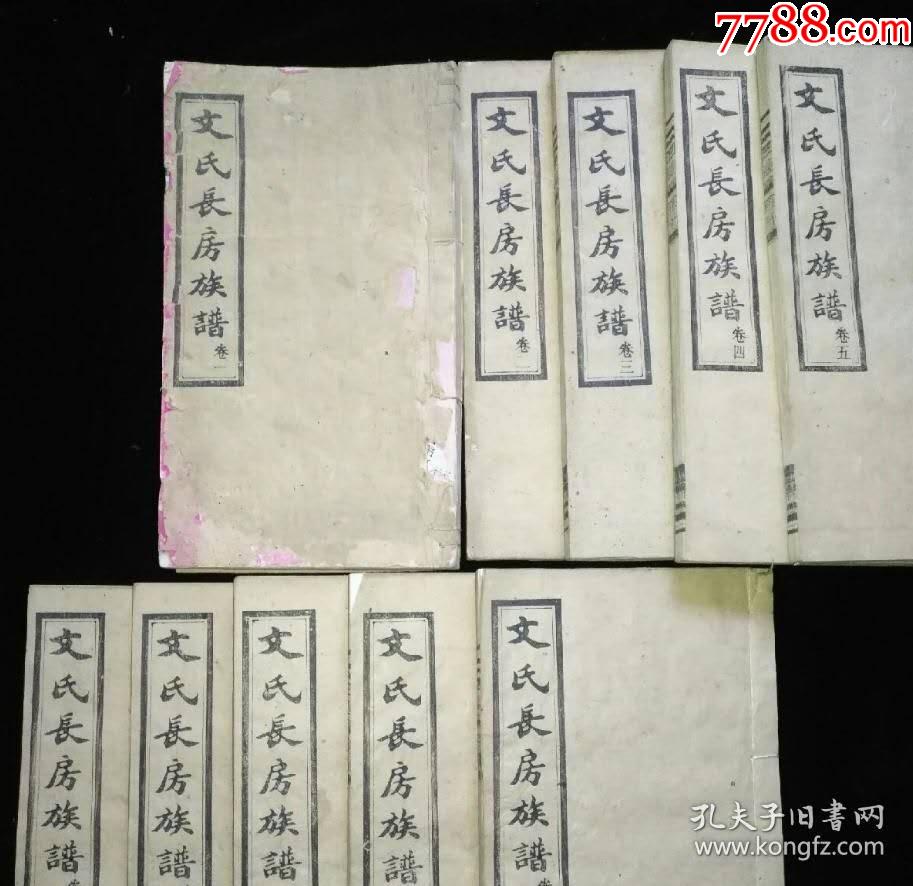 7788.com
文氏長房族譜 卷一
文氏長房族譜 卷二
文氏長房族譜 卷三
文氏長房族譜 卷四
文氏長房族譜 卷五
文氏長房族譜
文氏長房族譜
文氏長房族譜
文氏長房族譜
文氏長房族譜
孔夫子旧書网
www.kongfz.com